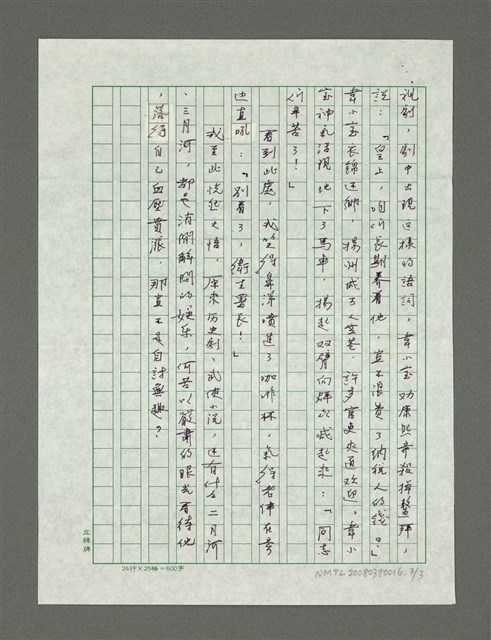 視劇，劇中出現這樣的語詞，韋小宝劝康熙帝殺掉鰲拜，
説：「皇上，咱们長期養着他，豈不浪費了納税人的錢？」
韋小宝衣錦还鄉，揚州城万人空巷，許多官吏夾道欢迎。韋小
宝神气活現地下了馬車，揚起双臂向群众喊起來：「同志
们辛苦了！」
看到此處，我笑得鼻涕噴進了咖啡杯，氣得老伴在旁
边直吼：「別看了，衛生署長！」
我至此恍然大悟，原來历史剧、武俠小説，还有什么二月河
、三月河，都是消閒解悶的娱乐，何苦以嚴肅的眼光看待他
，落得自己血壓賁漲，那豈不是自討無趣？
立類牌
24行×25格=600字
NMTL20080380016. 3/3